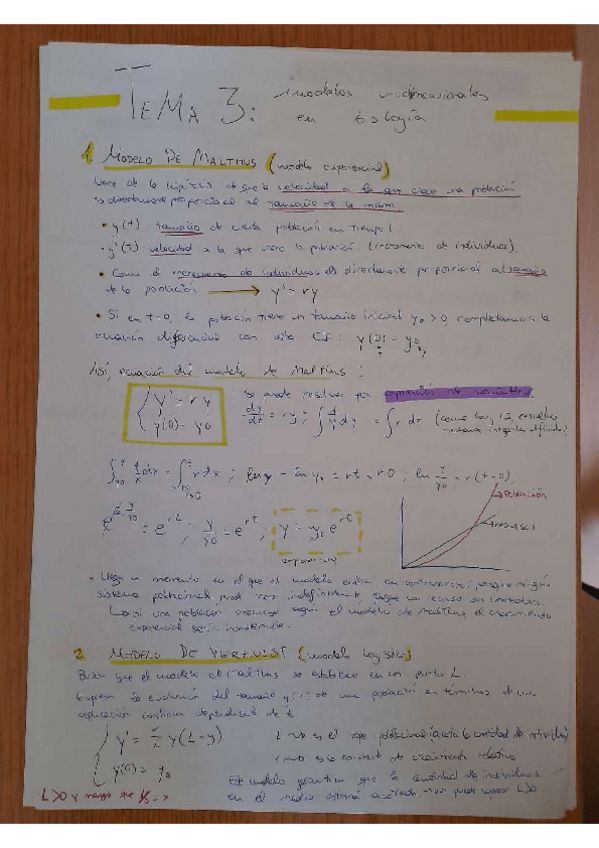 TEMA 3: modelos unidimensionales
en biología
1. MODELO DE MALTHUS (modelo exponencial)
Nace de la hipótesis de que la velocidad a la que crece una población
es directamente proporcional al tamaño de la misma
• y(t): tamaño de cierta población en tiempo t
• y'(t): velocidad a la que crece la población (incremento de individuos)
• Como el incremento de individuos es directamente proporcional al tamaño
de la población → y' = ry
• Si en t=0, la población tiene un tamaño inicial y₀ > 0, completamos la
ecuación diferencial con esta CI: y(0) = y₀
Así, ecuación del modelo de Malthus:
y' = ry
y(0) = y₀
se puede resolver por separación de variables
dy/dt = ry; ∫ 1/y dy = ∫ r dt (como hay
ln y - ln y₀ = rt - r0; ln y/y₀ = r(t-0)
= e^rt; y/y₀ = e^rt; y = y₀ e^rt
exponencial
Población
recursos
• Llega un momento en el que el modelo entra en porque ningún
sistema poblacional puede crecer indefinidamente, porque los recursos son limitados.
si una población creciese según el modelo de Malthus, el crecimiento
exponencial sería insostenible.
2. MODELO DE VERHULST (modelo logístico)
que el modelo de Malthus se estabilice en un punto L
Expresa la evolución del tamaño y(t) de una población en términos de una
aplicación continua dependiente de t
y' = r/L y(L-y)
y(0) = y₀
L → es el tope poblacional (hasta la cantidad de individuos)
r → es la constante de crecimiento relativo
Este modelo garantiza que la cantidad de individuos
en el medio estará acotada, → no puede superar L>0
L>0 y